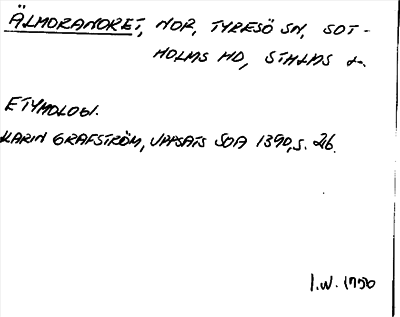 ÄLMORANORET, NOR, TYRESÖ SN, SOT-
HOLMS HD, STHLMS L.
ETYMOLOGI.
KARIN GRAFSTRÖM, UPPSATS SOA 1390, S. 26.
I.W. 1970